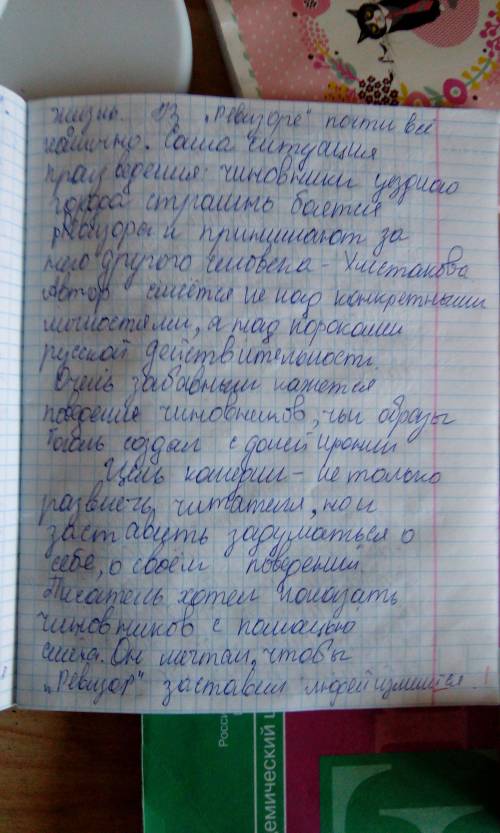 жизнь. Из „Ревизоре" почти всё
комично. Сама ситуация
произведения: чиновники уездного
города страшно боятся
ревизора и принимают за
него другого человека - Хлестакова
Автор смеётся не над конкретными
личностями, а над пороками
русской действительности.
Очень забавным кажется
поведение чиновников, чьи образы
Гоголь создал с долей иронии
Цель комедии - не только
развлечь читателя, но и
заставить задуматься о
себе, о своём поведении.
Писатель хотел показать
чиновников с помощью
смеха. Он мечтал, чтобы
„Ревизор" заставил людей измиится.
Росси
демический ц